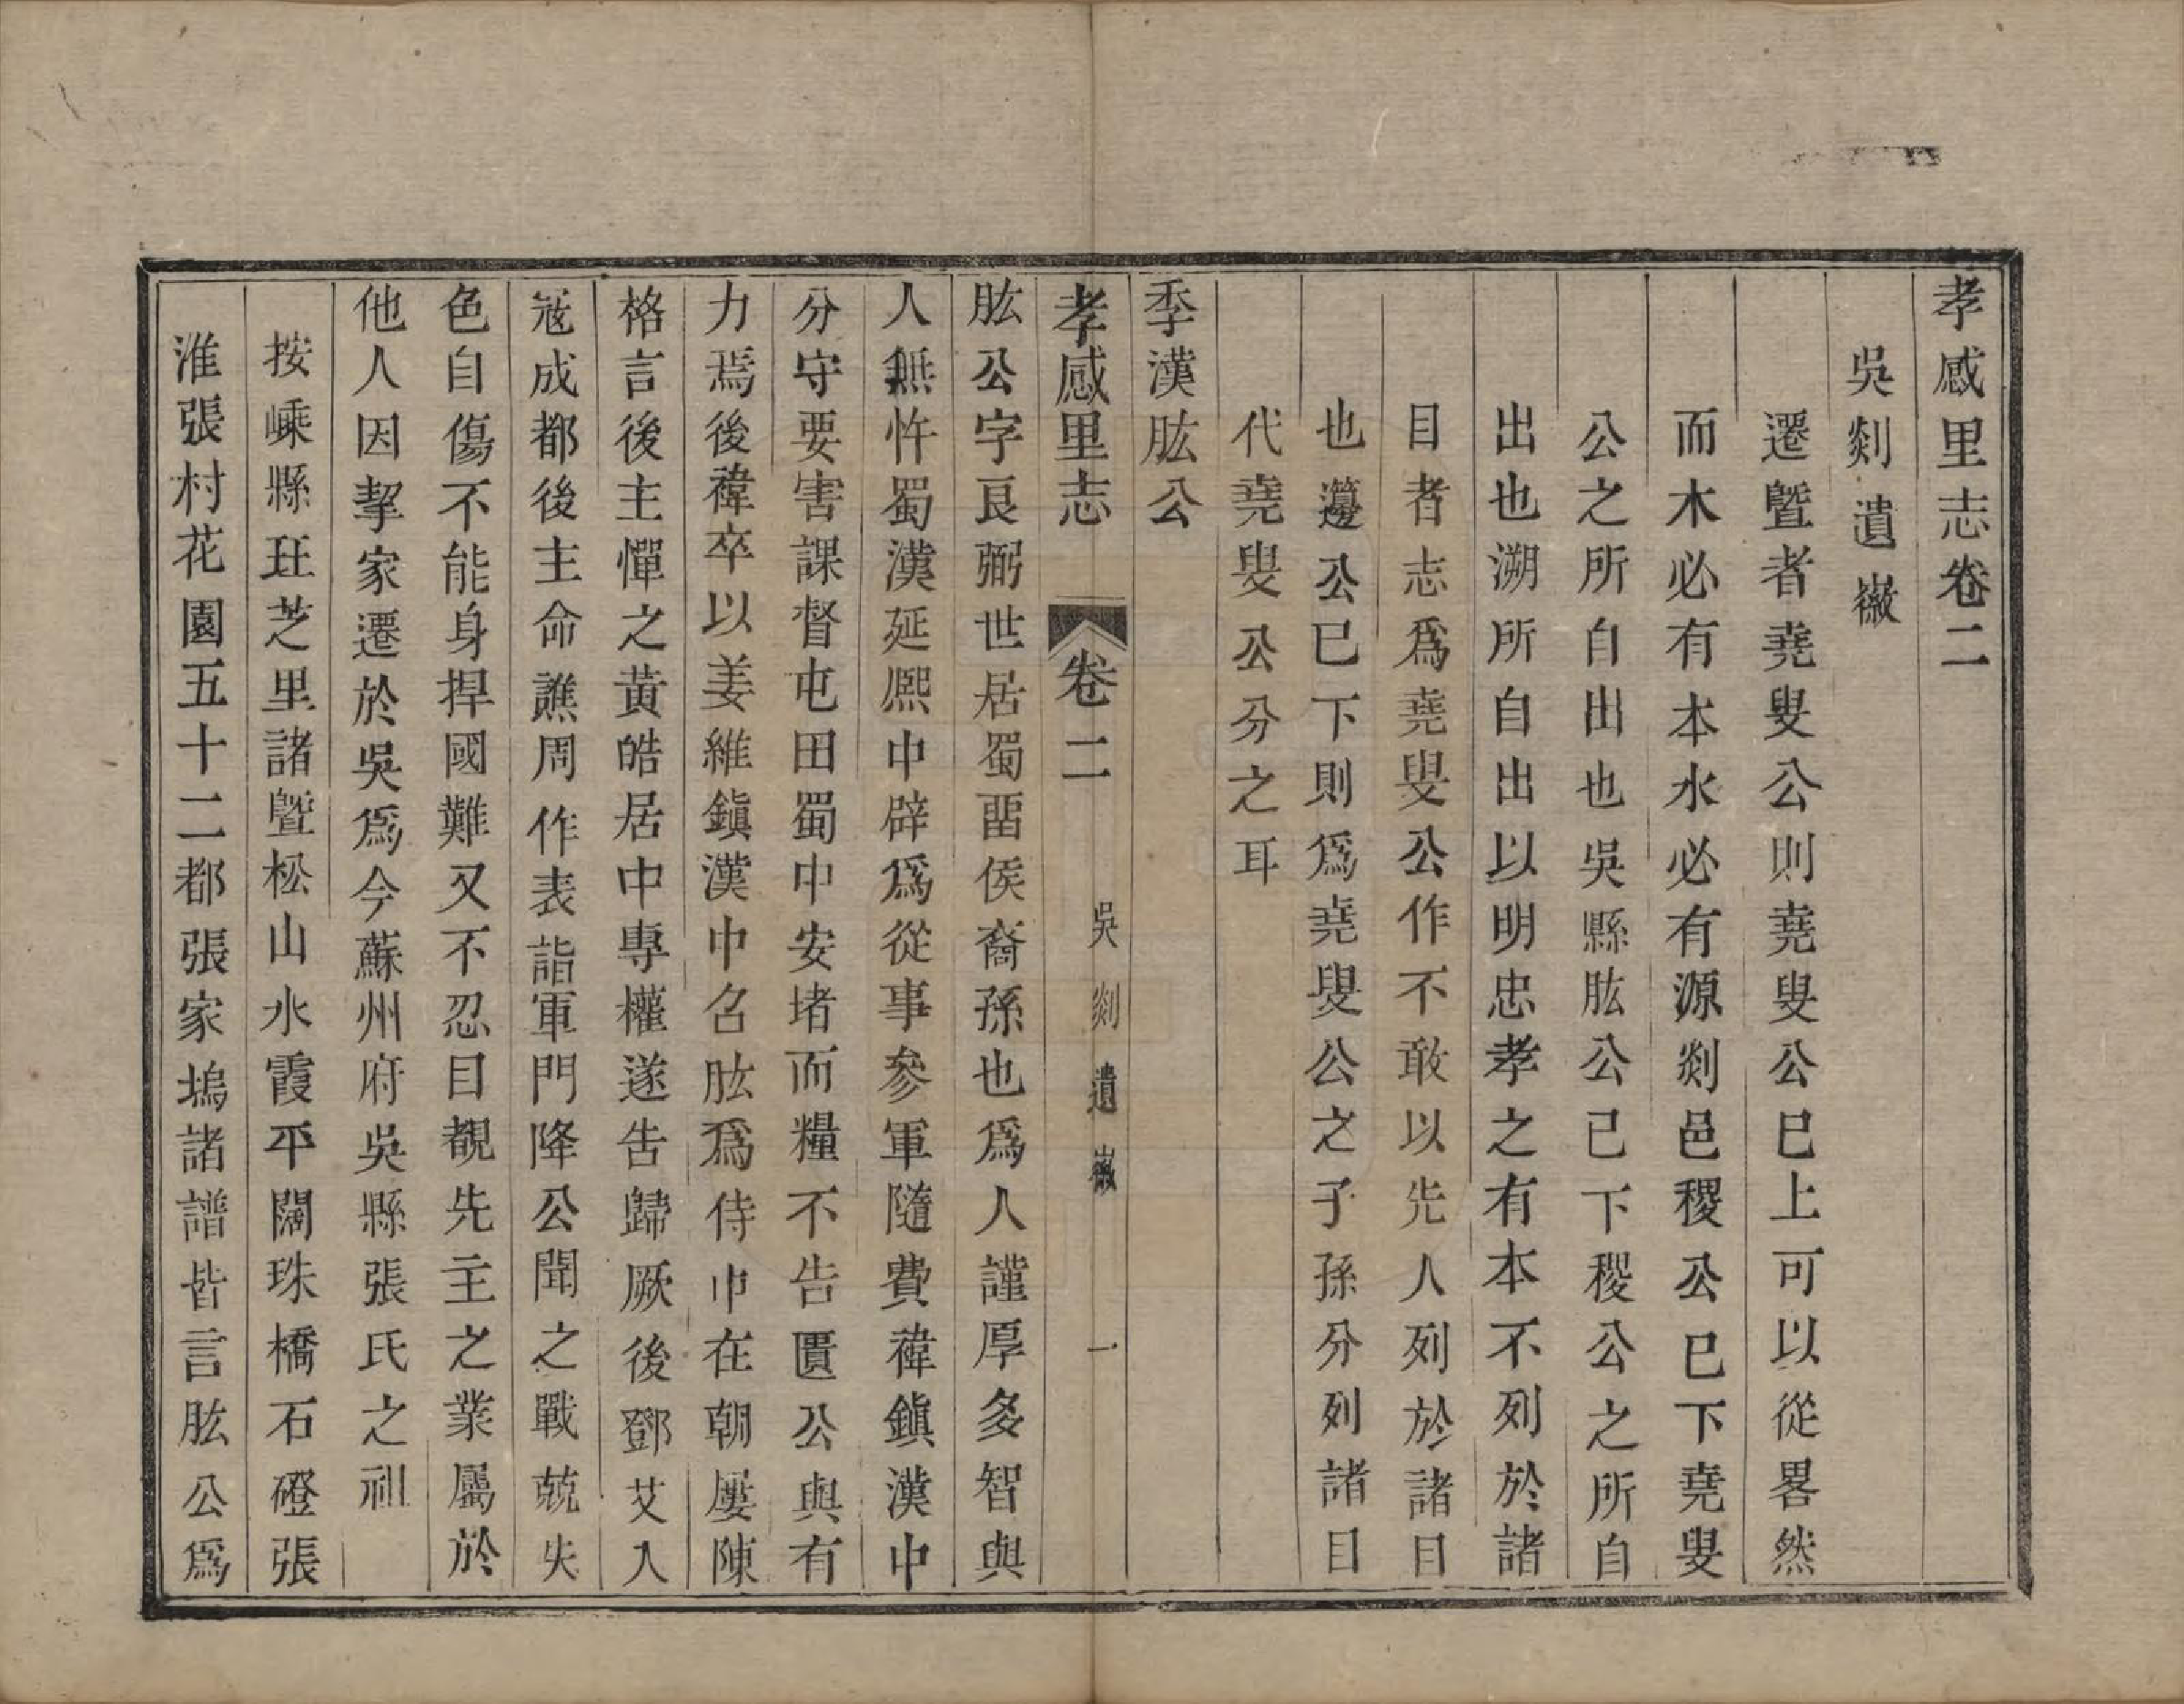 孝感里志卷二
吳剡遺徽
遷曁者堯叟公則堯叟公已上可以從畧然
而木必有本水必有源剡邑稷公已下堯叟
公之所自出也吳縣肱公已下稷公之所自
出也溯所自出以明忠孝之有本不列於諸
目者志爲堯叟公作不敢以先人列於諸目
也藴公已下則爲堯叟公之子孫分列諸目
代堯叟公分之耳
季漢肱公
孝感里志 卷二 吳剡遺徽 一
肱公字良弼世居蜀畱侯裔孫也爲人謹厚多智與
人無忤蜀漢延熙中辟爲從事參軍隨費禕鎭漢中
分守要害課督屯田蜀中安堵而糧不告匱公與有
力焉後禕卒以姜維鎭漢中召肱爲侍中在朝屢陳
格言後主憚之黃皓居中專權遂告歸厥後鄧艾入
冦成都後主命譙周作表詣軍門降公聞之戰兢失
色自傷不能身捍國難又不忍目覩先主之業屬於
他人因挈家遷於吳爲今蘇州府吳縣張氏之祖
按嵊縣玨芝里諸曁松山水霞平闊珠橋石磴張
淮張村花園五十二都張家塢諸譜皆言肱公爲